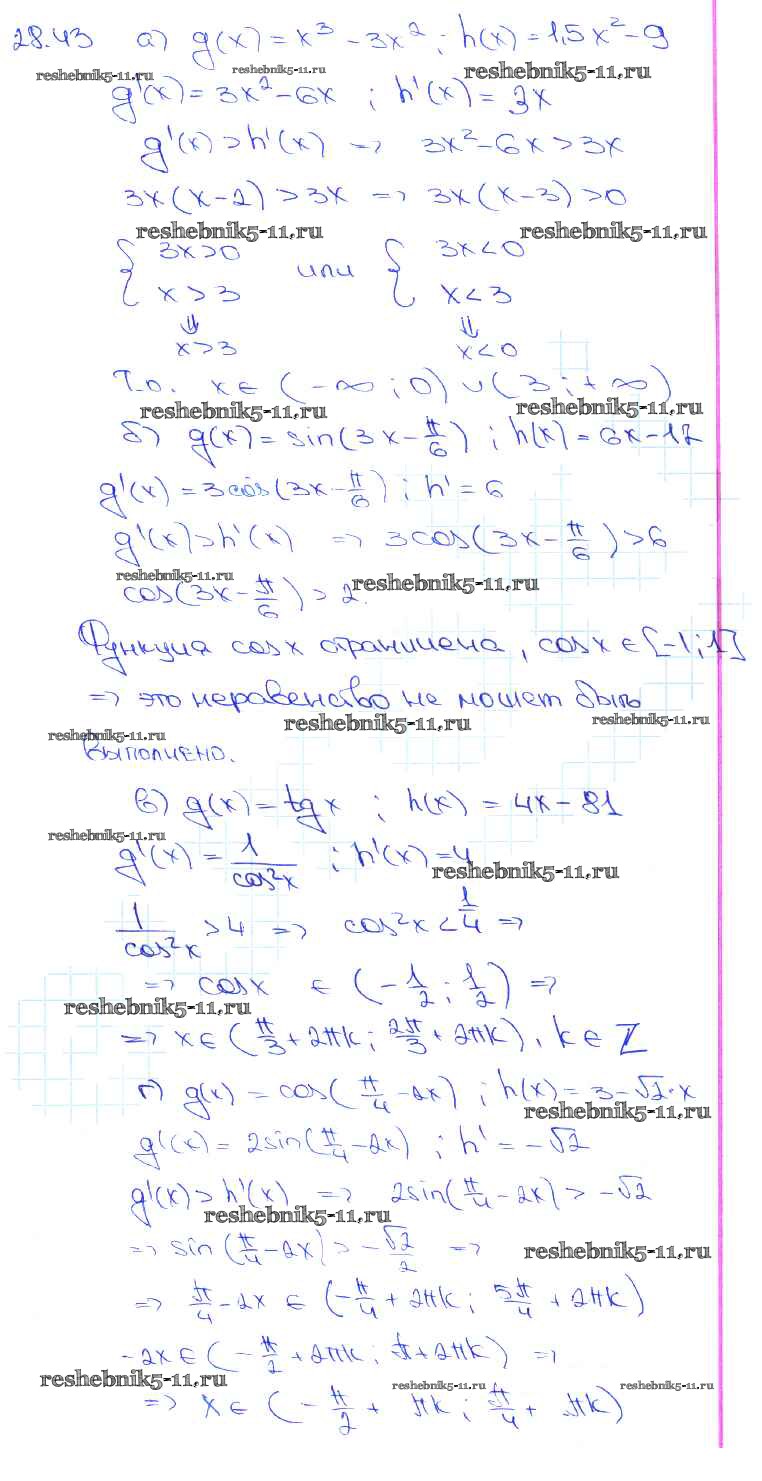 28.43 а) g(x) = x³ - 3x² ; h(x) = 1,5x² - 9
reshebnik5-11.ru reshebnik5-11.ru reshebnik5-11.ru
g'(x) = 3x² - 6x ; h'(x) = 3x
g'(x) > h'(x) => 3x² - 6x > 3x
3x(x-2) > 3x => 3x(x-3) > 0
reshebnik5-11.ru reshebnik5-11.ru
{ 3x > 0 или { 3x < 0
x > 3 x < 3
⇓ ⇓
x > 3 x < 0
Т.о. x ∈ (-∞ ; 0) ∪ (3 ; +∞)
reshebnik5-11.ru reshebnik5-11.ru
б) g(x) = sin(3x - π/6) ; h(x) = 6x - 12
g'(x) = 3cos(3x - π/6) ; h' = 6
g'(x) > h'(x) => 3cos(3x - π/6) > 6
reshebnik5-11.ru reshebnik5-11.ru
cos(3x - π/6) > 2.
Функция cosx ограничена, cosx ∈ [-1; 1]
=> это неравенство не может быть
reshebnik5-11.ru reshebnik5-11.ru reshebnik5-11.ru
выполнено.
в) g(x) = tgx ; h(x) = 4x - 81
reshebnik5-11.ru
g'(x) = 1/cos²x ; h'(x) = 4
reshebnik5-11.ru
1/cos²x > 4 => cos²x < 1/4 =>
=> cosx ∈ (-1/2 ; 1/2) =>
reshebnik5-11.ru
=> x ∈ (π/3 + 2πk ; 2π/3 + 2πk), k ∈ Z
г) g(x) = cos(π/4 - 2x) ; h(x) = 3 - √2·x
reshebnik5-11.ru
g'(x) = 2sin(π/4 - 2x) ; h' = -√2
g'(x) > h'(x) => 2sin(π/4 - 2x) > -√2
reshebnik5-11.ru
=> sin(π/4 - 2x) > -√2/2 =>
reshebnik5-11.ru
=> π/4 - 2x ∈ (-π/4 + 2πk ; 5π/4 + 2πk)
-2x ∈ (-π/2 + 2πk ; π + 2πk) =>
reshebnik5-11.ru reshebnik5-11.ru reshebnik5-11.ru
=> x ∈ (-π/2 + πk ; π/4 + πk)